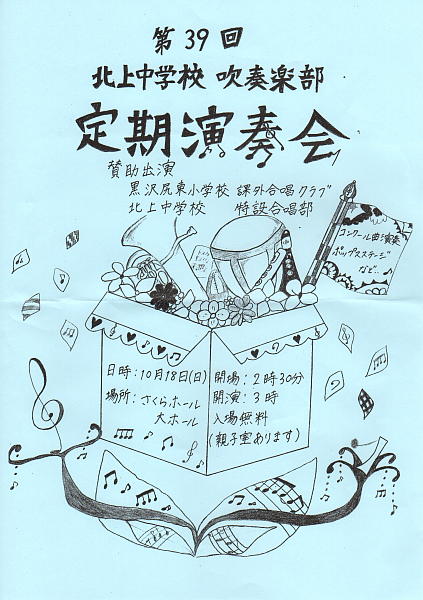 第39回
北上中学校 吹奏楽部
定期演奏会
賛助出演
黒沢尻東小学校 課外合唱クラブ
北上中学校 特設合唱部
コンクール曲演奏
ポップスステージ
など…
日時:10月18日(日)
場所:さくらホール
大ホール
開場:2時30分
開演:3時
入場無料
(親子室あります)